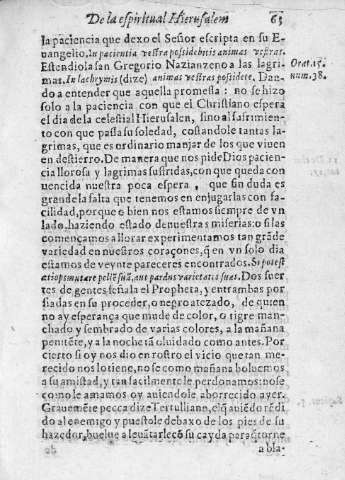 De la espiritual Hierusalem 63
la paciencia que dexo el Señor escripta en su E-
uangelio. In pacientia vestra possidebitis animas vestras.
Estendiola san Gregorio Nazianzeno a las lagri-
mas. In lachrymis (dize) animas vestras possidete. Dan-
do a entender que aquella promessa: no se hizo
solo a la paciencia con que el Christiano espera
el dia de la celestial Hierusalen, sino al sufrimien-
to con que passa su soledad, costandole tantas la-
grimas, que es ordinario manjar de los que viuen
en destierro. De manera que nos pide Dios pacien-
cia llorosa y lagrimas sufridas, con que queda con
uencida nuestra poca espera, que sin duda es
grande la falta que tenemos en enjugarlas con fa-
cilidad, porque o bien nos estamos siempre de vn
lado, haziendo estado de nuestras miserias: o si las
començamos a llorar experimentamos tan grãde
variedad en nuestros coraçones, q̃ en vn solo dia
estamos de veynte pareceres encontrados. Si potest
æthiops mutare pellẽ suã, aut pardus varietates suas. Dos suer
tes de gentes señala el Propheta, y entrambas por
fiadas en su proceder, o negro atezado, de quien
no ay esperança que mude de color, o tigre man-
chado y sembrado de varias colores, a la mañana
penitẽte, y a la noche tã oluidado como antes. Por
cierto si oy nos dio en rostro el vicio que tan me-
recido nos lo tiene, no se como mañana boluemos
a su amistad, y tan facilmente le perdonamos: no se
como no le amamos oy auiendole aborrecido ayer.
Grauemẽte pecca dize Tertulliano, el q̃ auiẽdo rẽdi
do al enemigo y puestole debaxo de los pies de su
hazedor, buelue a leuãtarle cõ su cayda para q̃ torne
a bla-
Orat. 15.
num. 38.